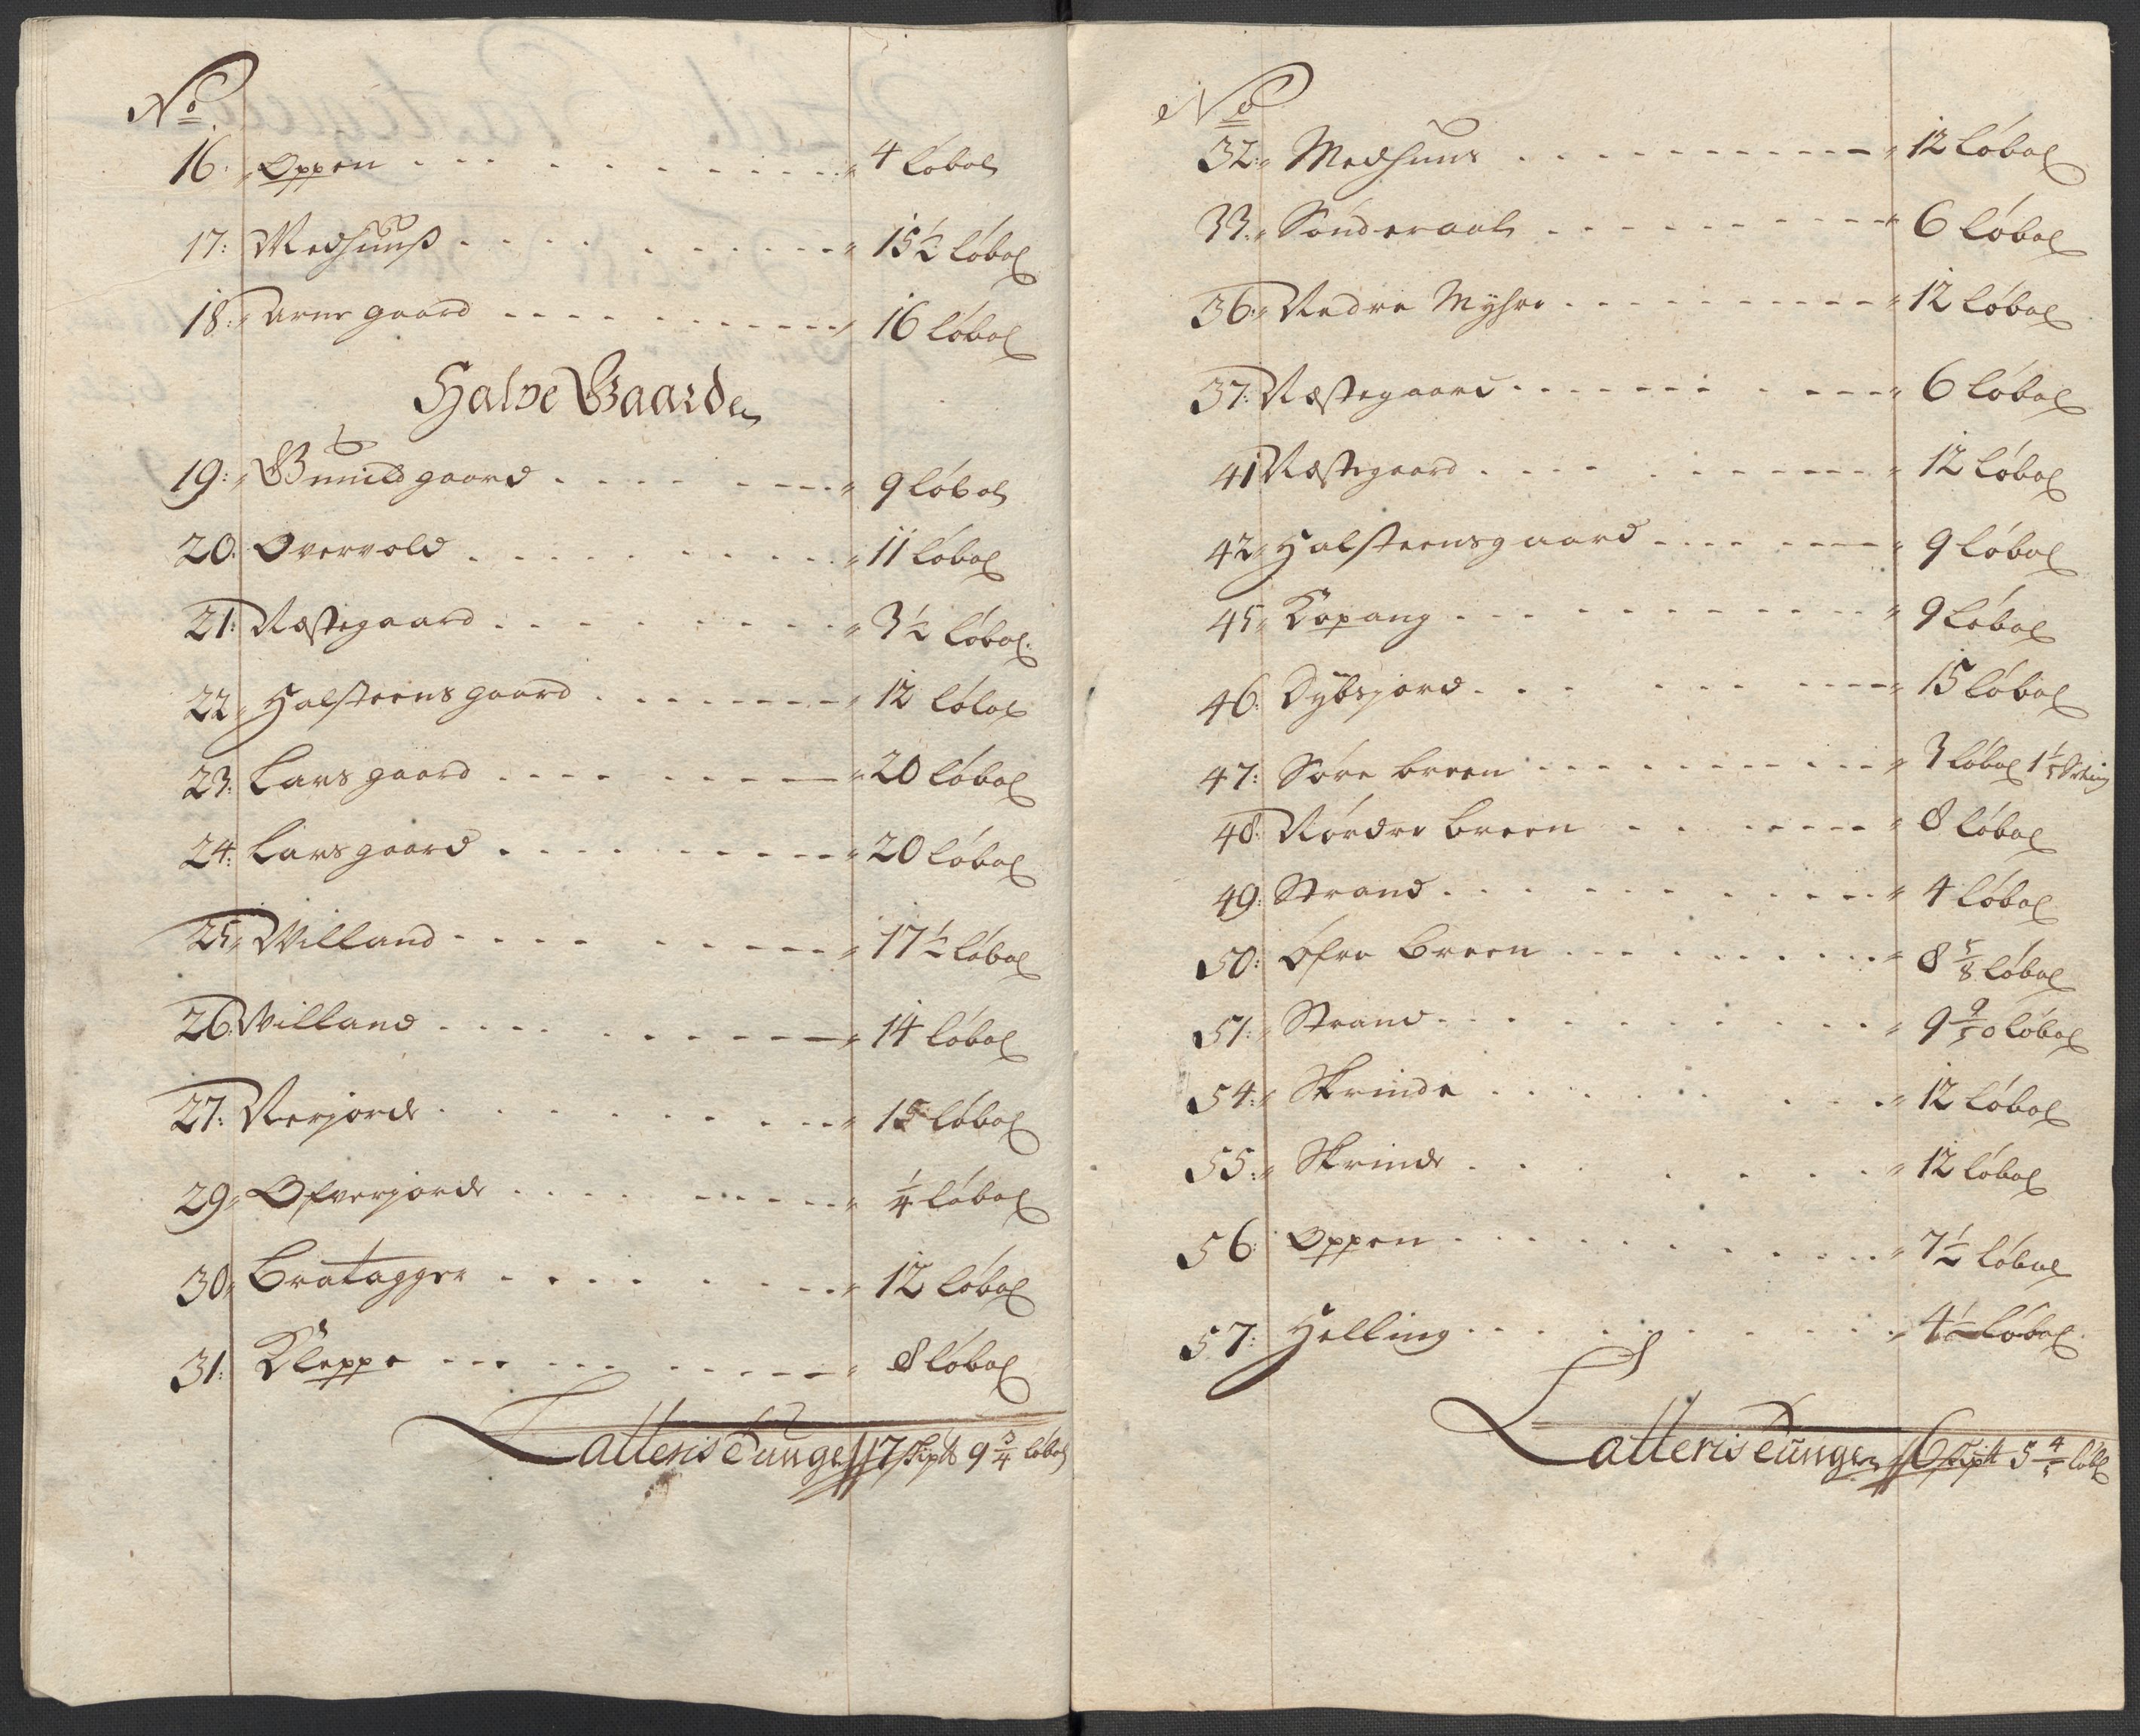 No
16: Oppen - - - 4 Løbol
17: Medhuuß - - - 15½ Løbol
18: Arne gaard - - - 16 Løbol
Halve Gaarder
19: Gunild gaard - - - 9 Løbol
20: Overvold - - - 11 Løbol
21: Næstegaard - - - 3½ Løbol
22 Halsteens gaard - - - 12 Løbol
23: Lars gaard - - - 20 Løbol
24: Lars gaard - - - 20 Løbol
25 Villand - - - 17½ Løbol
26 Villand - - - 14 Løbol
27: Nerjorde - - - 15 Løbol
29 Ofverjorde - - - ¼ Løbol
30 Bratagger - - - 12 Løbol
31: Kleppe - - - 8 Løbol
Latteris Punge 17 Skipt 9¾ Løbol
No
32: Medhuus - - - 12 Løbol
33: Sønderaal - - - 6 Løbol
36: Nedre Myhre - - - 12 Løbol
37: Næstegaard - - - 6 Løbol
41 Næstegaard - - - 12 Løbol
42 Halsteensgaard - - - 9 Løbol
45 Kopang - - - 9 Løbol
46: Dybsjord - - - 15 Løbol
47: Søre breen - - - 3 Løbol 1⅕
48: Nørdre breen - - - 8 Løbol
49: Strand - - - 4 Løbol
50: Øfre Breen - - - 8⅝ Løbol
51: Strand - - - 9 9/50 Løbol
54: Skrinde - - - 12 Løbol
55: Skrinde - - - 12 Løbol
56: Oppen - - - 7½ Løbol
57: Helling - - - 4½ Løbol
Latteris Punger 16 Skipt 5⅘ Løbl